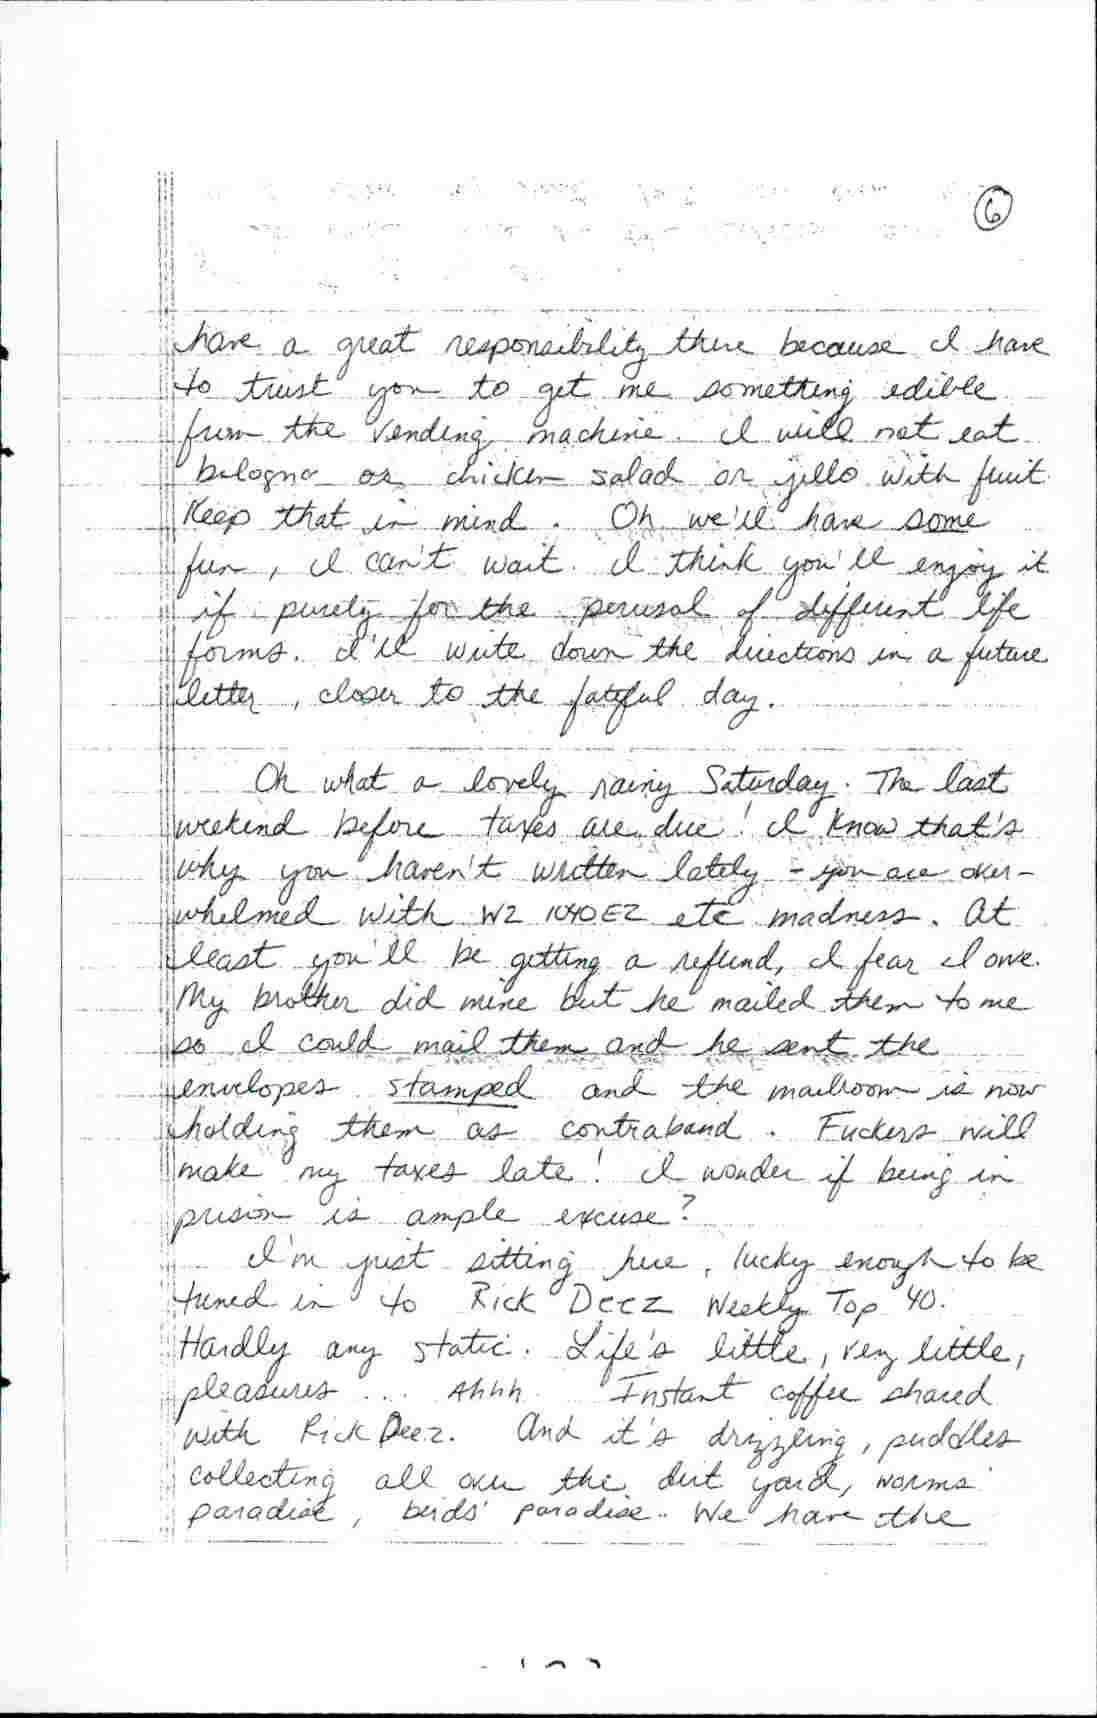 6
have a great responsibility there because I have
to trust you to get me something edible
from the vending machine. I will not eat
bologna or chicken salad or jello with fruit.
Keep that in mind. Oh we'll have some
fun, I can't wait. I think you'll enjoy it
if purely for the perusal of different life
forms. I'll write down the directions in a future
letter, closer to the fateful day.
Oh what a lovely rainy Saturday. The last
weekend before taxes are due! I know that's
why you haven't written lately - you are over-
whelmed with W2 1040EZ etc madness. At
least you'll be getting a refund, I fear I owe.
My brother did mine but he mailed them to me
so I could mail them and he sent the
envelopes stamped and the mailroom is now
holding them as contraband. Fuckers will
make my taxes late! I wonder if being in
prison is ample excuse?
I'm just sitting here, lucky enough to be
tuned in to Rick Deez Weekly Top 40.
Hardly any static. Life's little, very little,
pleasures ... Ahhh. Instant coffee shared
with Rick Deez. And it's drizzling, puddles
collecting all over the dirt yard, worms'
paradise, birds' paradise. We have the